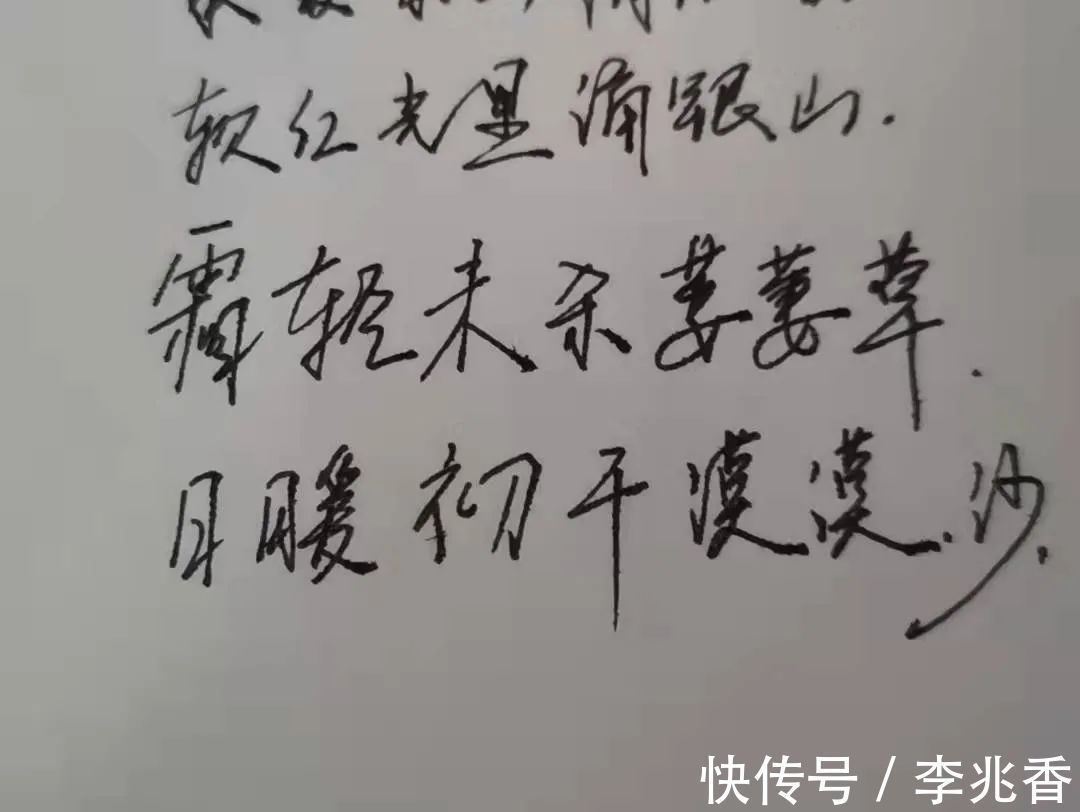 软红光里涌银山.
霜轻未杀萋萋草.
日暖初干漠漠沙.
快传号 / 李兆香